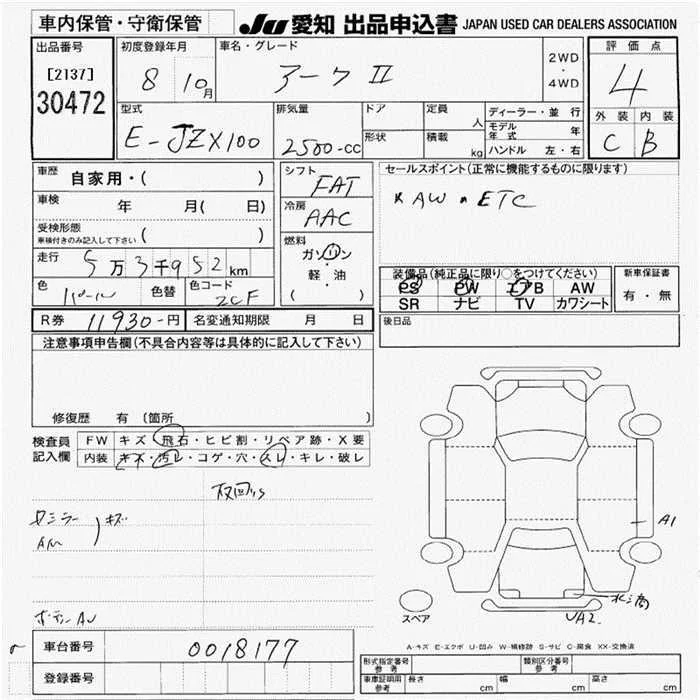 車内保管・守衛保管
JU 愛知 出品申込書 JAPAN USED CAR DEALERS ASSOCIATION
出品番号
[2137]
30472
初度登録年月
8 10月
車名・グレード
アーク II
2WD
・
4WD
評価点
4
外装 内装
C B
型式
E-JZX100
排気量
2500-cc
ドア
形状
定員 人
積載 kg
ディーラー・並行
モデル年式 年
ハンドル 左・右
車歴 自家用・( )
車検 年 月( 日)
受検形態
車検付きのみ記入して下さい ( )
走行 5万3千952km
色 パール 色替
色コード 2CF
シフト FAT
冷房 AAC
燃料
ガソリン
・
軽・油
( )
セールスポイント(正常に機能するものに限ります)
AW ETC
装備品(純正品に限り○をつけてください)
PS PW エアB AW
SR ナビ TV カワシート
新車保証書
有・無
R券 11930-円 名変通知期限 月 日
後日品
注意事項申告欄(不具合内容等は具体的に記入して下さい)
修復歴 有 (箇所 )
検査員記入欄
FW キズ・飛石・ヒビ割・リペア跡・X要
内装 キズ・汚レ・コゲ・穴・スレ・キレ・破レ
ミラー
AW
キズ
A1
UA2
スペア
A-キズ E-エクボ U-凹み W-補修跡 S-サビ C-腐食 XX-交換済
車台番号 0018177
登録番号
形式指定番号 参考
類別区分番号 参考
車庫証明用 参考 長さ cm 幅 cm 高さ cm